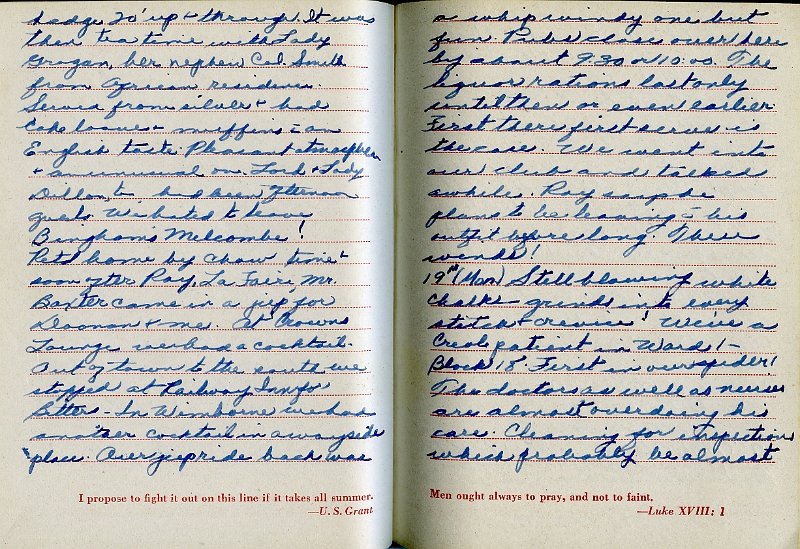 hedge 20' up & through. It was
then tea time with Lady
Grogan, her nephew Col. Smith
from African residence
Served from silver & had
Cake loaves & muffins - an
English taste. Pleasant atmosphere
& an unusual on. Lord & Lady
had been afternoon
guests. We hated to leave
Bingham's Melcombe!
home by chow time &
soon after Ray, La Faire, Mr.
Baxter came in a jeep for
& me. At Crowns
Lounge we had a cocktail.
Out of town to the south we
stopped at Railway Inn for
Bitters - In Wimborne we had
another cocktail in a wayside
place. Our jeep ride back was
I propose to fight it out on this line if it takes all summer.
—U. S. Grant
a whip windy one but
fun. Pubs close over here
by about 9:30 or 10:00. The
liquor rations last only
until then or even earlier.
First there first serve is
the case. We went into
our club and talked
awhile. Ray says he
plans to be leaving - his
outfit before long. Three
weeks!
19th (Mon) Still blowing white
chalk - grinds into every
stitch & crevice! We've a
patient in Ward 1 -
Block 18. First in our
The doctors as well as nurses
are almost overdoing his
care. Cleaning for inspection
which probably be almost
Men ought always to pray, and not to faint.
—Luke XVIII; 1